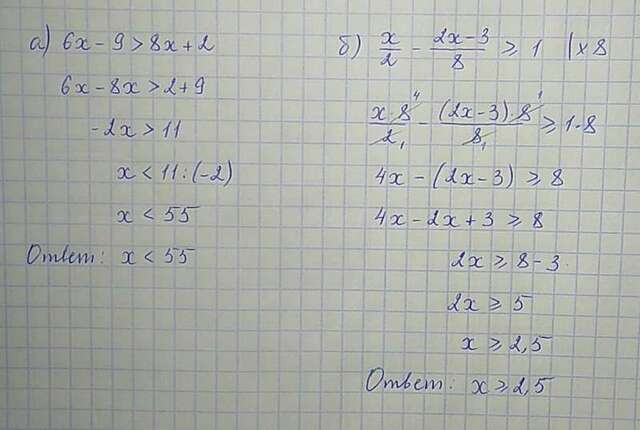 а) 6x - 9 > 8x + 2
6x - 8x > 2 + 9
-2x > 11
x < 11 : (-2)
x < 55
Ответ: x < 55
б) x/2 - (2x - 3)/8 ⩾ 1 | x 8
x · 8 4/2 1 - (2x - 3) · 8 1/8 1 ⩾ 1 · 8
4x - (2x - 3) ⩾ 8
4x - 2x + 3 ⩾ 8
2x ⩾ 8 - 3
2x ⩾ 5
x ⩾ 2,5
Ответ: x ⩾ 2,5